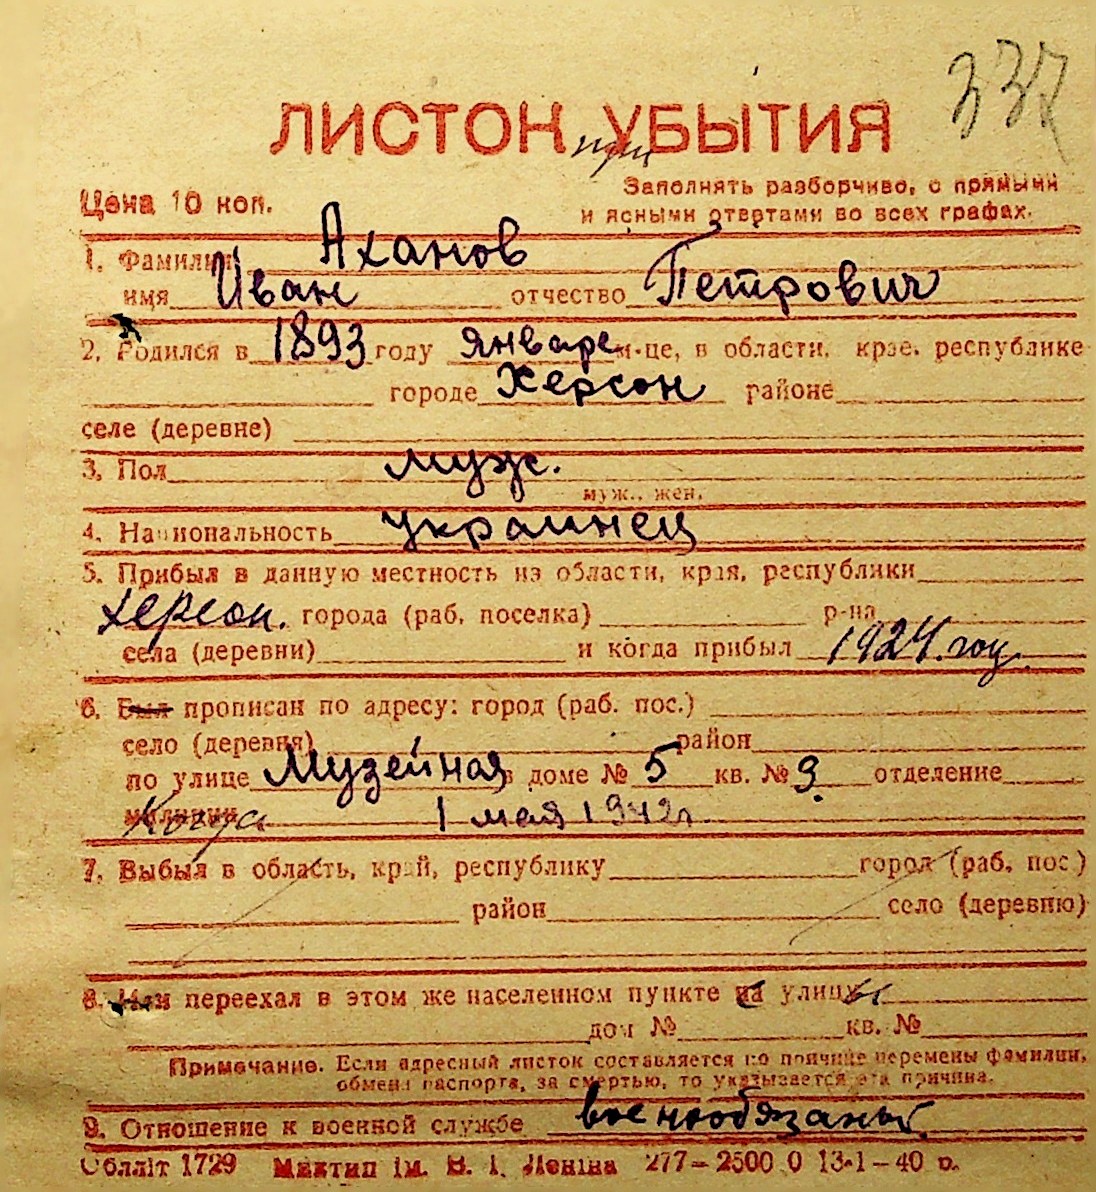 337
ЛИСТОК при УБЫТИЯ
Цена 10 коп.
Заполнять разборчиво, с прямыми
и ясными ответами во всех графах.
1. Фамилия Аханов
имя Иван отчество Петрович
2. Родился в 1893 году январе м-це, в области, крае, республике
городе Херсон районе
селе (деревне)
3. Пол муж.
муж., жен.
4. Национальность украинец
5. Прибыл в данную местность из области, края, республики
Херсон. города (раб. поселка) р-на
села (деревни) и когда прибыл 1924. год.
6. Был прописан по адресу: город (раб. пос.)
село (деревня) район
по улице Музейная в доме № 5 кв. № 9. отделение
милиции Когда 1 мая 1942 г.
7. Выбыл в область, край, республику город (раб. пос.)
район село (деревню)
8. Или переехал в этом же населенном пункте с улицы
дом № кв. №
Примечание. Если адресный листок составляется по причине перемены фамилии,
обмена паспорта, за смертью, то указывается эта причина.
9. Отношение к военной службе военнообязаный
Обллiт 1729 Миктип iм. В. I. Ленiна 277–2500 0 13-1–40 р.